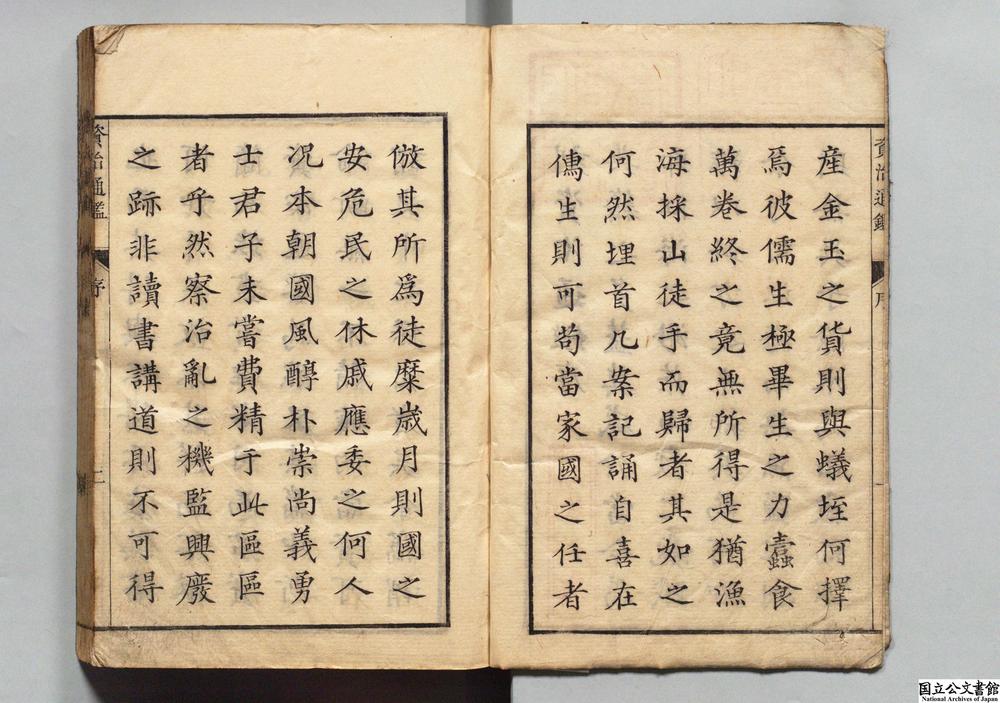 資治通鑑
序
産金玉之貨則與蟻垤何擇
焉彼儒生極畢生之力蠹食
萬卷終之竟無所得是猶漁
海採山徒手而歸者其如之
何然埋首几案記誦自喜在
儒生則可苟當家國之任者
倣其所爲徒糜歳月則國之
安危民之休戚應委之何人
况本朝國風醇朴崇尚義勇
士君子未嘗費精于此區區
者乎然察治亂之機監興廢
之跡非讀書講道則不可得
資治通鑑
序
二
国立公文書館
National Archives of Japan